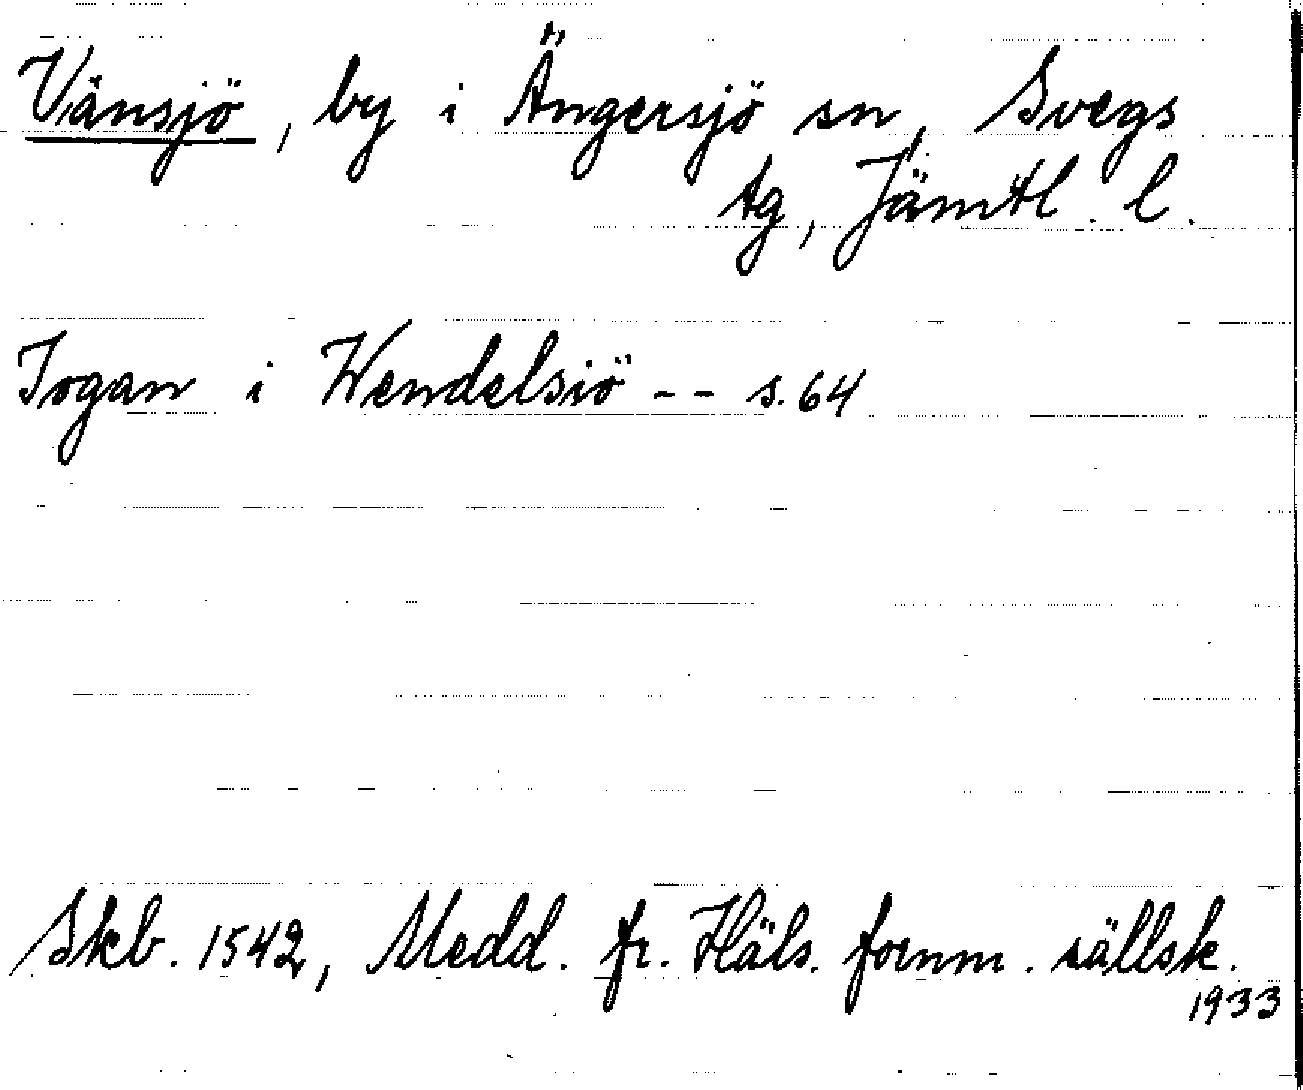 Vänsjö, by i Ängersjö sn, Svegs
tg, Jämtl. l.
Jogan i Wendelsiö -- s. 64
Skb. 1542, Medd. fr. Häls. fornm. sällsk.
1933